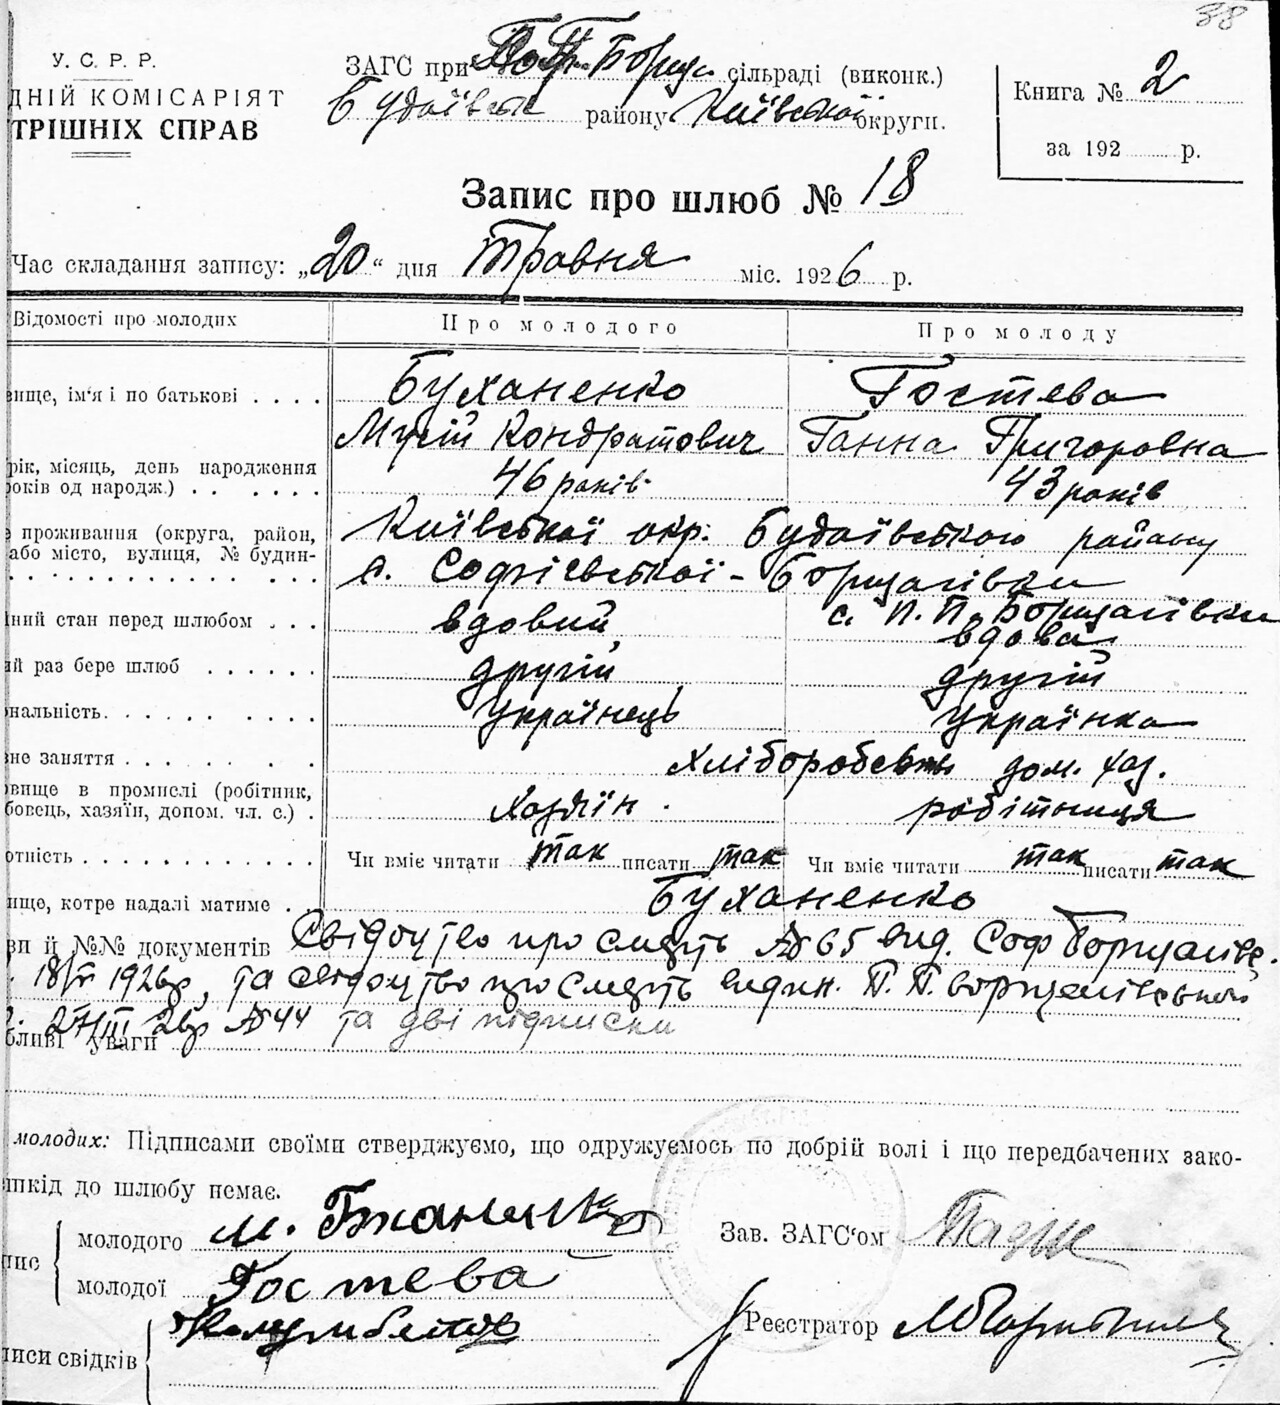 38
У. С. Р. Р.
ДНІЙ КОМІСАРІЯТ
ТРІШНІХ СПРАВ
ЗАГС при П. П. Борщ. сільраді (виконк.)
Будаївськ району Київської округи.
Книга № 2
за 192 р.
Запис про шлюб № 18
Час складання запису: „20“ дня Травня міс. 1926 р.
Відомості про молодих Про молодого Про молоду
вище, ім‘я і по батькові . . . . Буханенко Гостева
Мусій Кондратович Ганна Григоровна
рік, місяць, день народження
років од народж.) . . . . . . 46 років. 43 років
е проживання (округа, район, Київської окр. Будаївського району
або місто, вулиця, № будин-
с. Софієвської - Борщагівки
с. П. П. Борщагівки
ний стан перед шлюбом . . . вдовий вдова
ий раз бере шлюб . . . . . . другій другій
нальність. . . . . . . . . . Українець Українка
вне заняття . . . . . . . Хліборобство дом. хаз.
овище в промислі (робітник,
бовець, хазяїн, допом. чл. с.) . Хазяїн. робітниця
отність . . . . . . . . . . . . Чи вміє читати так писати так Чи вміє читати так писати так
вище, котре надалі матиме . Буханенко
ви й №№ документів Свідоцтво про смерть № 65 вид. Соф Борщагівс.
18/V 1926р, та свідоцтво про смерть видан. П. П. Борщагівської
27/III 26р № 44 та дві підписки
бливі уваги
молодих: Підписами своїми стверджуємо, що одружуємось по добрій волі і що передбачених зако-
шкід до шлюбу немає.
пис молодого М. Буханенко
молодої Гостева
Зав. ЗАГС‘ом
писи свідків
Реєстратор